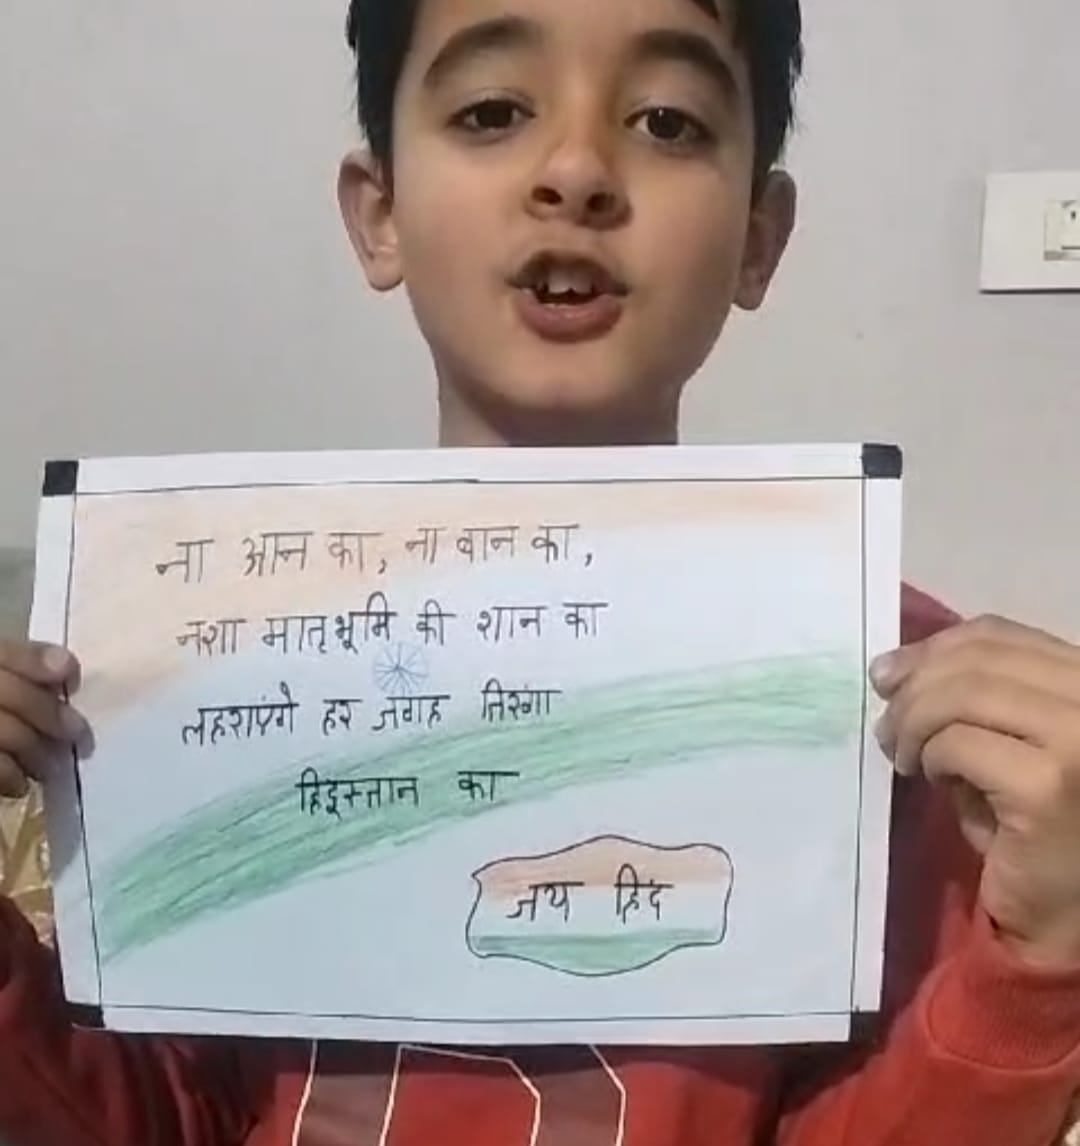 ना आन का, ना बान का,
नशा मातृभूमि की शान का
लहराएंगे हर जगह तिरंगा
हिंदुस्तान का
जय हिंद